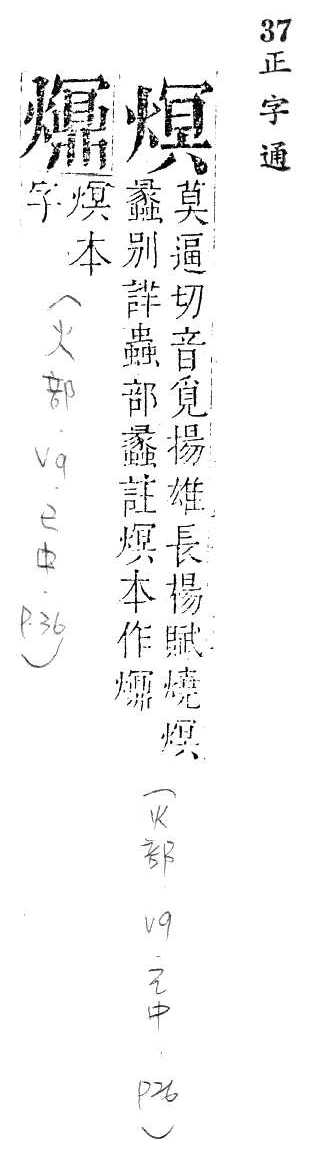 37正字通
熐
莫逼切音覓揚雄長楊賦燒熐
蠡別詳蟲部蠡註熐本作
（火部.V9.巳中.P26）
熐本
字
（火部.V9.巳中.P.36）